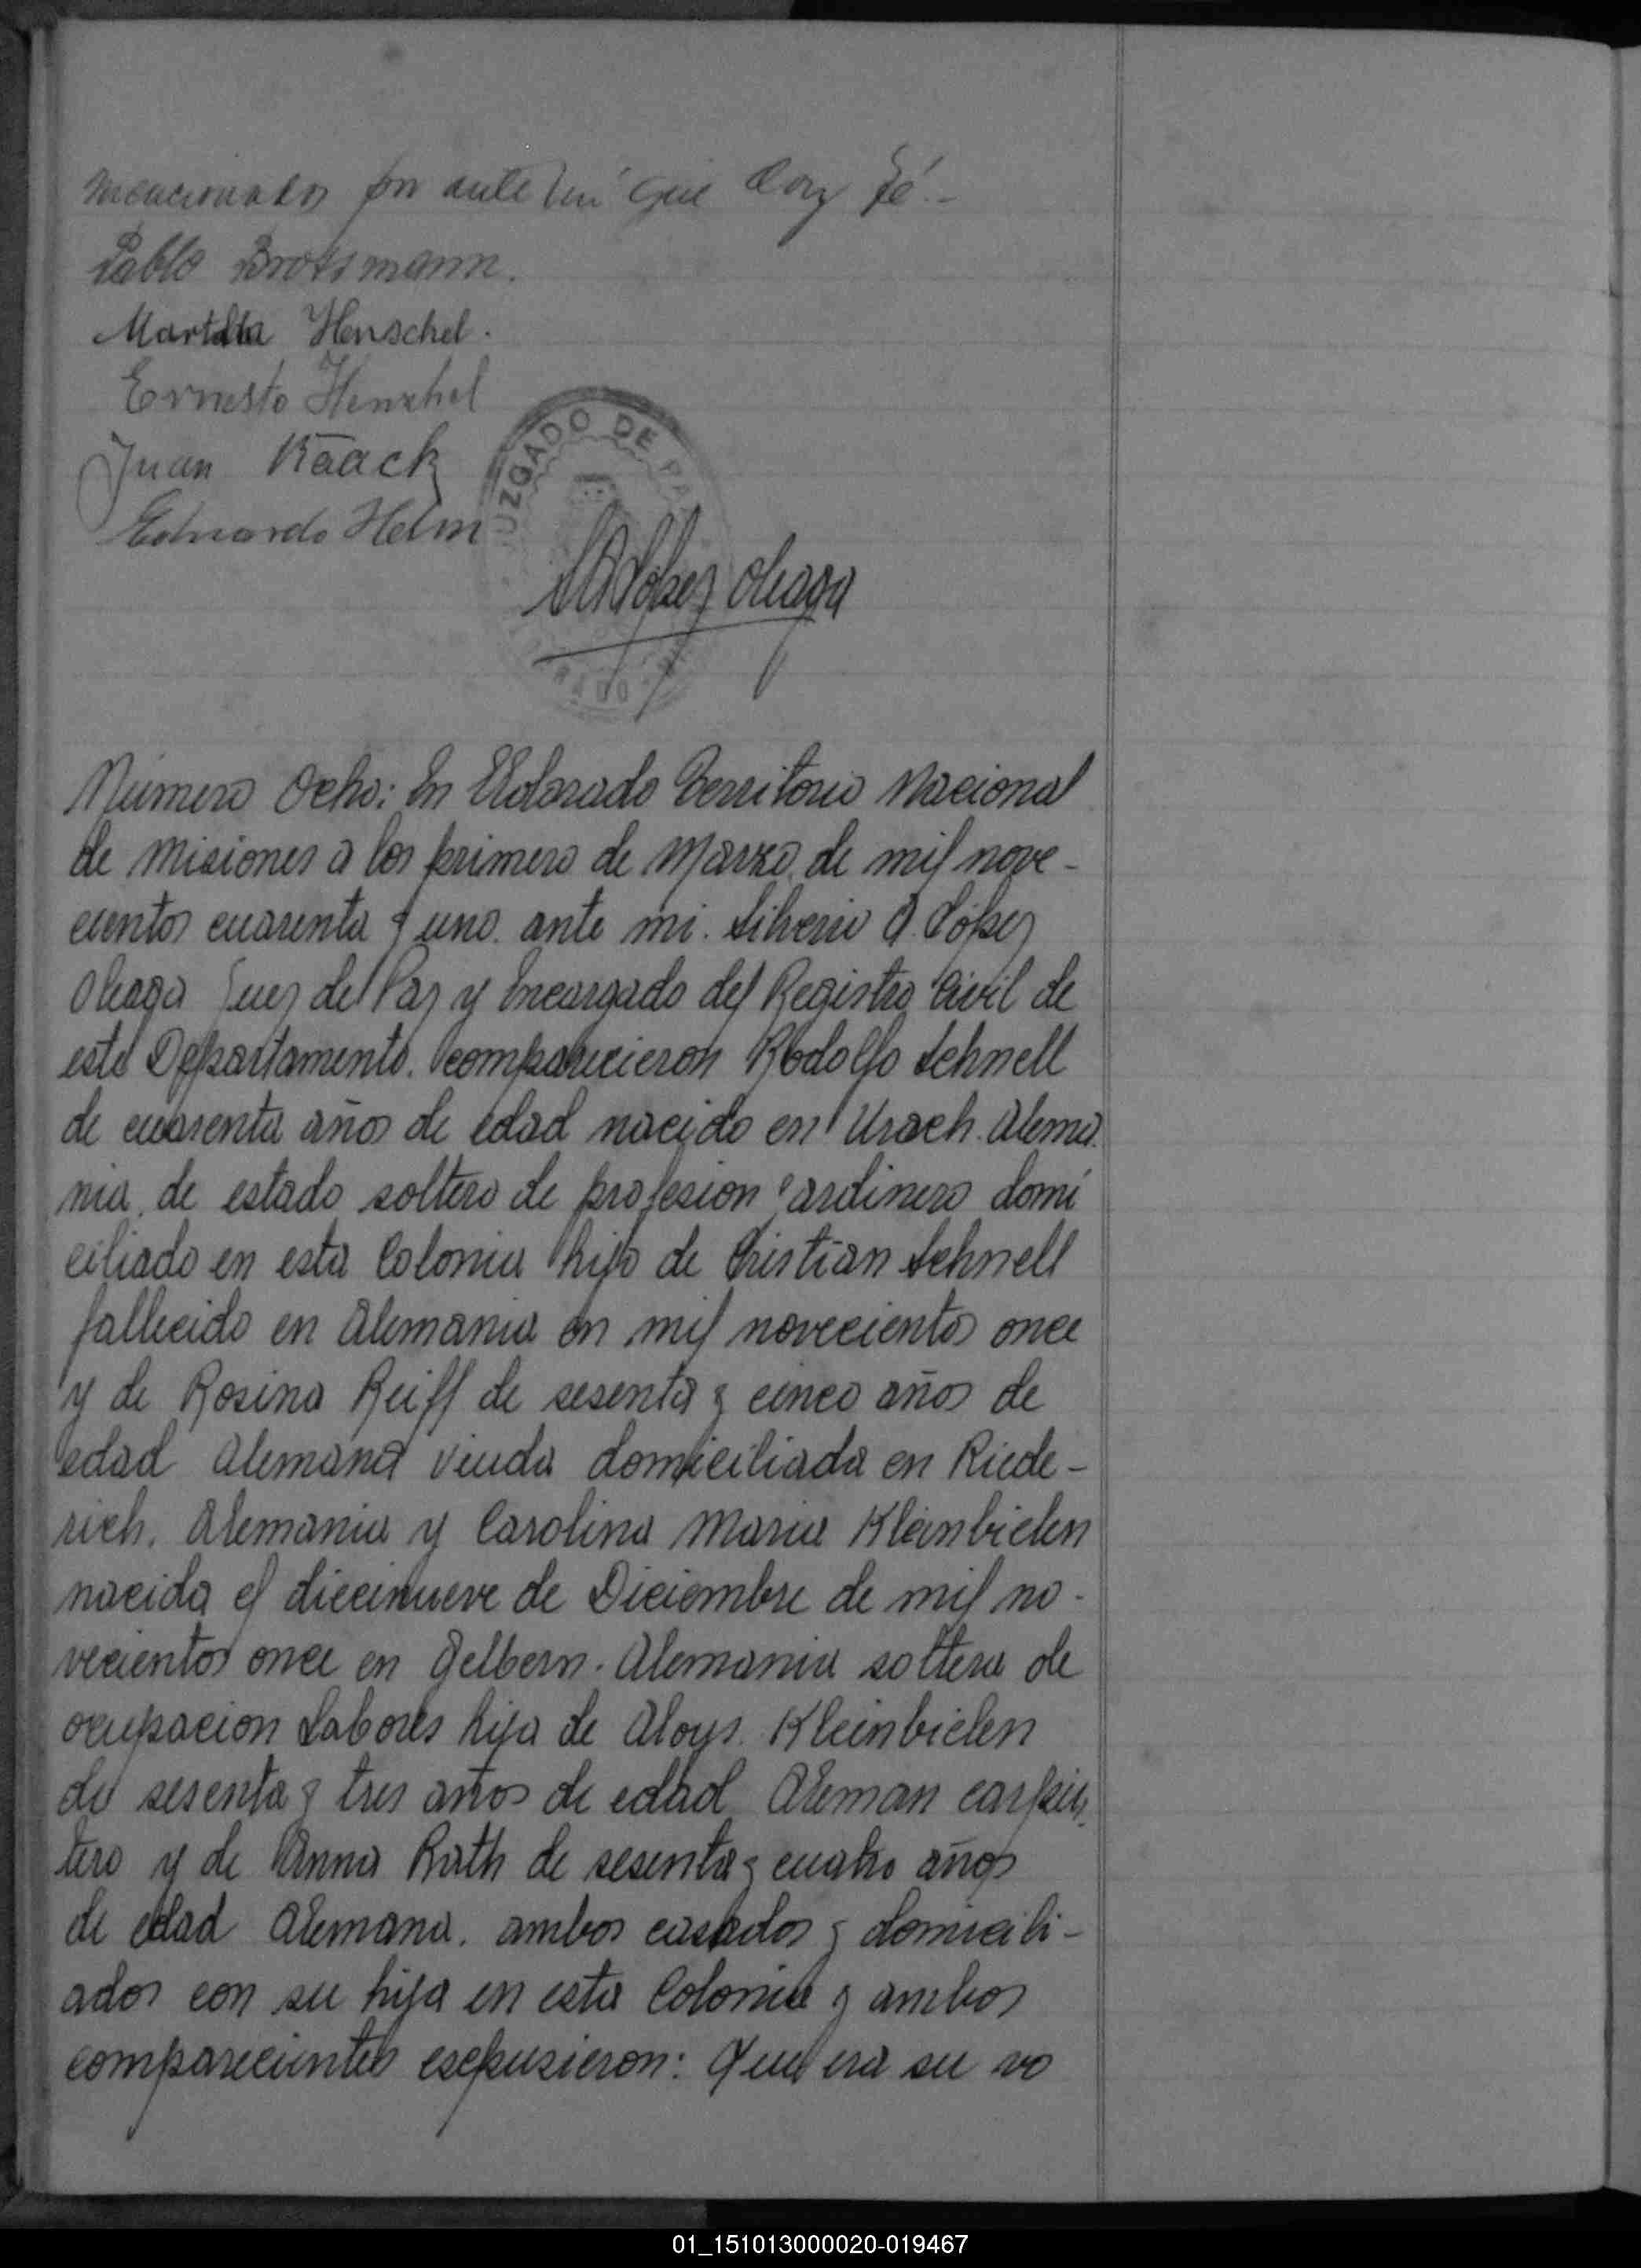 mencionados por ante mi que doy fé.-
Pablo Brotsmann.
Martha Henschel.
Ernesto Henschel
Juan Kaack
Eduardo Helm
JUZGADO DE PA
López Oleaga
Número Ocho: En Eldorado Territorio Nacional
de Misiones a los primero de Marzo de mil nove-
cientos cuarenta y uno. ante mi. Silverio A. López
Oleaga Juez de Paz y Encargado del Registro Civil de
este Departamento. comparecieron Rodolfo Schnell
de cuarenta años de edad nacido en Urach. Alema.
nia, de estado soltero de profesion jardinero domi
ciliado en esta Colonia hijo de Cristian Schnell
fallecido en Alemania en mil novecientos once
y de Rosina Reiff de sesenta y cinco años de
edad Alemana viuda domiciliada en Riede-
rich. Alemania y Carolina Maria Kleinbielen
nacida el diecinueve de Diciembre de mil no-
vecientos once en Gelbern. Alemania soltera de
ocupacion Labores hija de Aloys. Kleinbielen
de sesenta y tres años de edad Aleman carpin.
tero y de Anna Rath de sesenta y cuatro años
de edad Alemana. ambos casados y domicili-
ados con su hija en esta Colonia y ambos
comparecientes escpusieron: Que era su vo
01_151013000020-019467